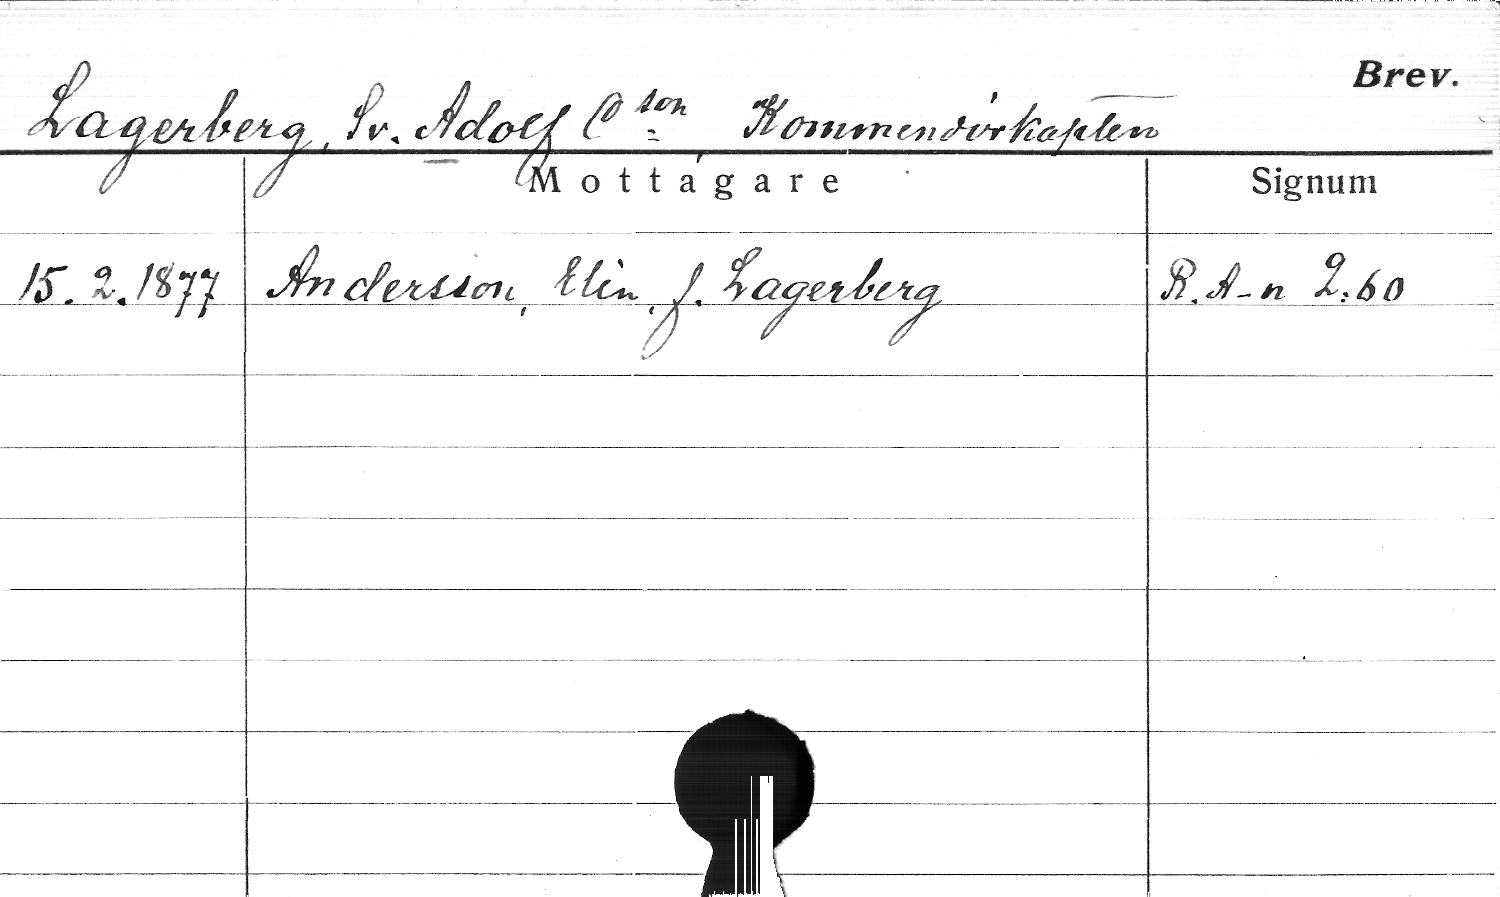 Brev.
Lagerberg, Sv. Adolf C:son, Kommendörkapten
Mottagare Signum
15.2.1877 Andersson, Elin, f. Lagerberg R. A-n 2:60